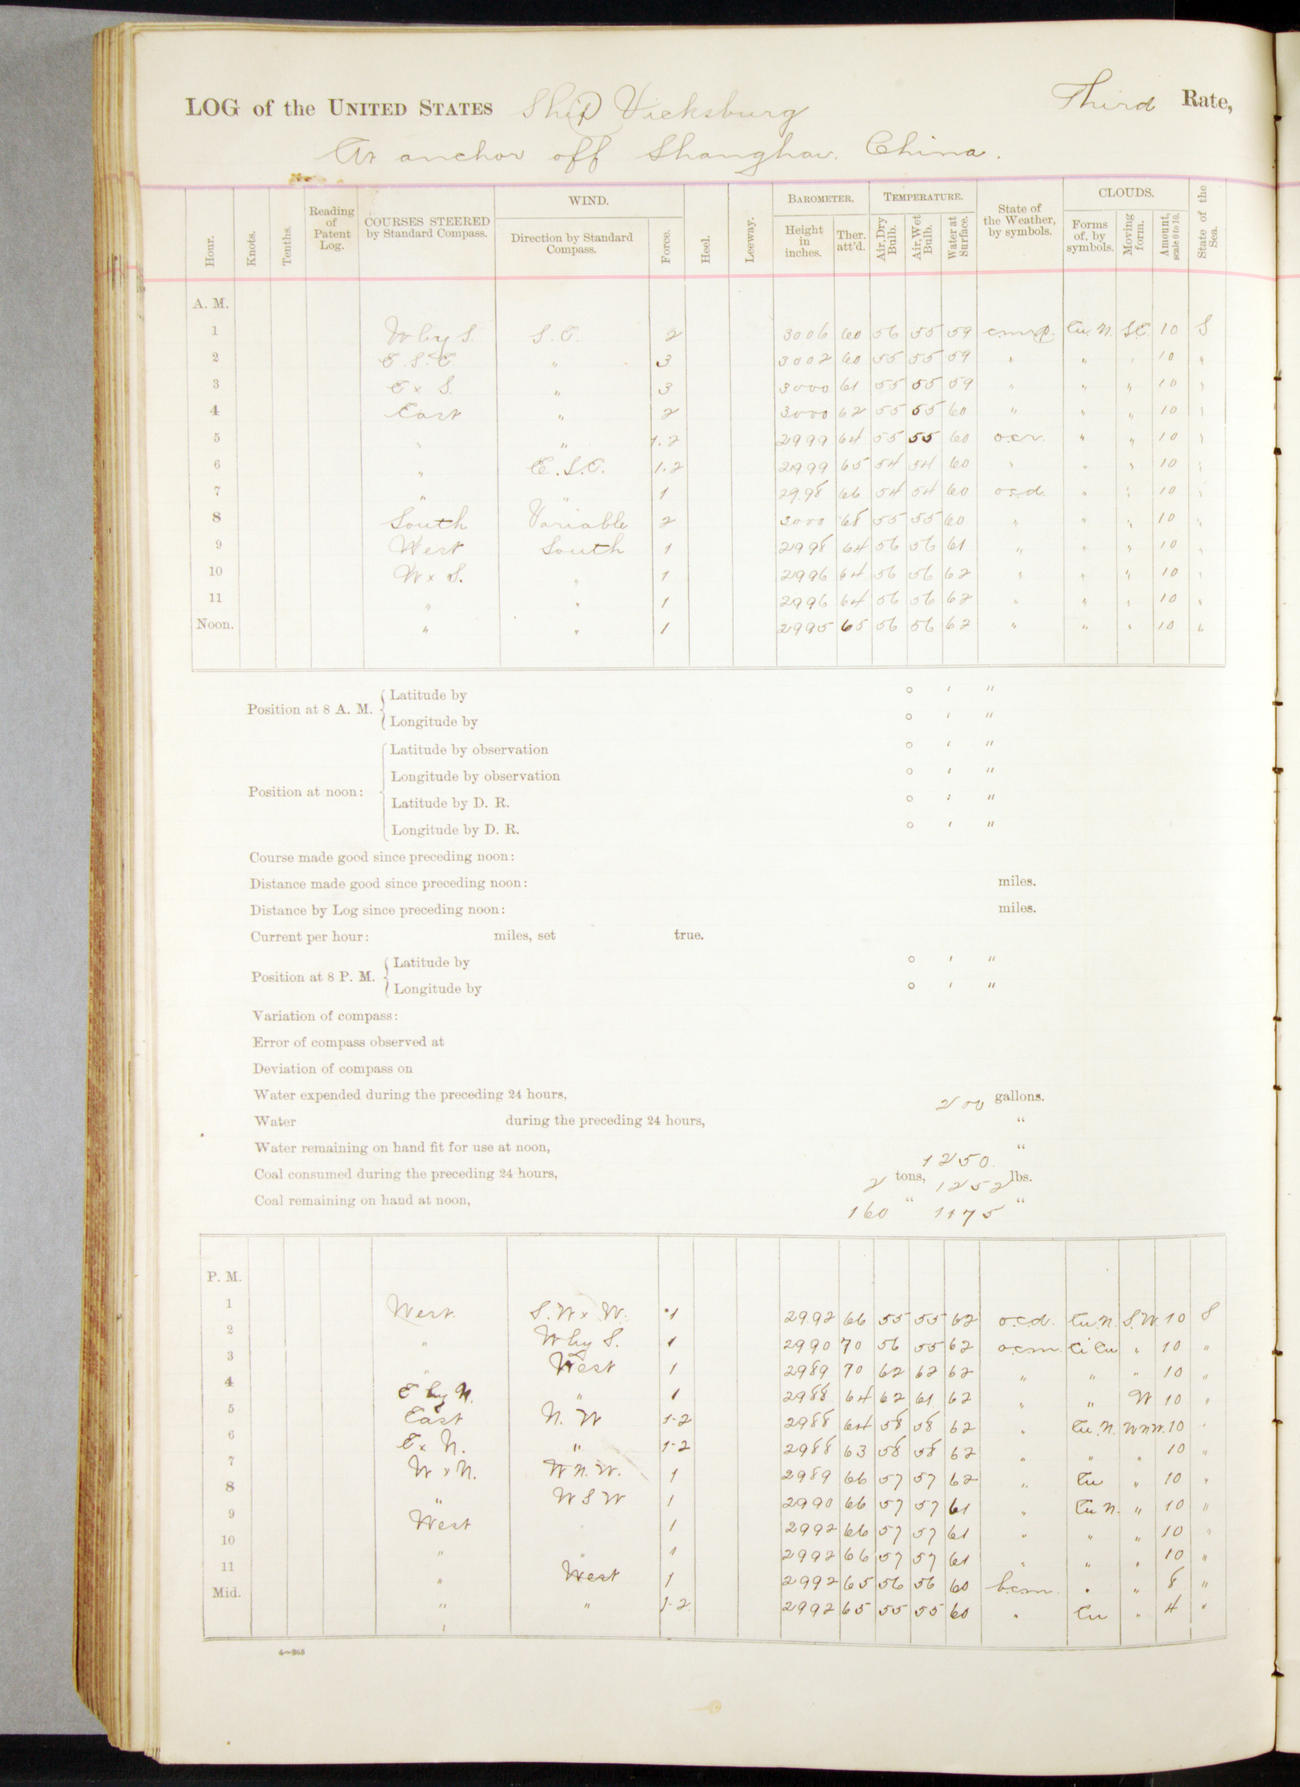 LOG of the UNITED STATES Ship Vicksburg Third Rate,
At anchor off Shanghai. China.
Hour. Knots. Tenths. Reading of Patent Log. COURSES STEERED by Standard Compass. WIND. Direction by Standard Compass. Force. Heel. Leeway. BAROMETER. Height in inches. Ther. att'd. TEMPERATURE. Air, Dry Bulb. Air, Wet Bulb. Water at Surface. State of the Weather, by symbols. CLOUDS. Forms of, by symbols. Moving form. Amount, scale 0 to 10. State of the Sea.
A. M.
1 W by S. S.E. 2 3006 60 56 55 59 Cu.N. S.E. 10 S
2 E.S.E. " 3 3002 60 55 55 59 " " " 10 "
3 E x S. " 3 3000 61 55 55 59 " " " 10 "
4 East " 2 3000 62 55 55 60 " " " 10 "
5 " " 1.2 2999 64 55 55 60 o.c.r. " " 10 "
6 " E.S.E. 1.2 2999 65 54 54 60 " " " 10 "
7 " " 1 29.98 66 54 54 60 o.c.d. " " 10 "
8 South Variable 2 3000 68 55 55 60 " " " 10 "
9 West South 1 2998 64 56 56 61 " " " 10 "
10 W x S. " 1 2996 64 56 56 62 " " " 10 "
11 " " 1 2996 64 56 56 62 " " " 10 "
Noon. " " 1 2995 65 56 56 62 " " " 10 "
Position at 8 A. M. Latitude by ° ' "
Longitude by ° ' "
Position at noon: Latitude by observation ° ' "
Longitude by observation ° ' "
Latitude by D. R. ° ' "
Longitude by D. R. ° ' "
Course made good since preceding noon:
Distance made good since preceding noon: miles.
Distance by Log since preceding noon: miles.
Current per hour: miles, set true.
Position at 8 P. M. Latitude by ° ' "
Longitude by ° ' "
Variation of compass:
Error of compass observed at
Deviation of compass on
Water expended during the preceding 24 hours, 200 gallons.
Water during the preceding 24 hours, "
Water remaining on hand fit for use at noon, 1250. "
Coal consumed during the preceding 24 hours, 2 tons, 1252 lbs.
Coal remaining on hand at noon, 160 " 1175 "
P. M.
1 West. S.W x W. 1 2992 66 55 55 62 o.c.d. Cu.N. S.W. 10 S
2 " W by S. 1 2990 70 56 55 62 o.c.m. Ci Cu " 10 "
3 " West 1 2989 70 62 62 62 " " " 10 "
4 E by N. " 1 2988 64 62 61 62 " " W 10 "
5 East N. W 1-2 2988 64 58 58 62 " Cu.N. WNW. 10 "
6 E x N. " 1-2 2988 63 58 58 62 " " " 10 "
7 W x N. W.N.W. 1 2989 66 57 57 62 " Cu " 10 "
8 " W S W 1 2990 66 57 57 61 " Cu N. " 10 "
9 West " 1 2992 66 57 57 61 " " " 10 "
10 " " 1 2992 66 57 57 61 " " " 10 "
11 " West 1 2992 65 56 56 60 b.c.m. " " 8 "
Mid. " " 1-2 2992 65 55 55 60 " Cu " 4 "